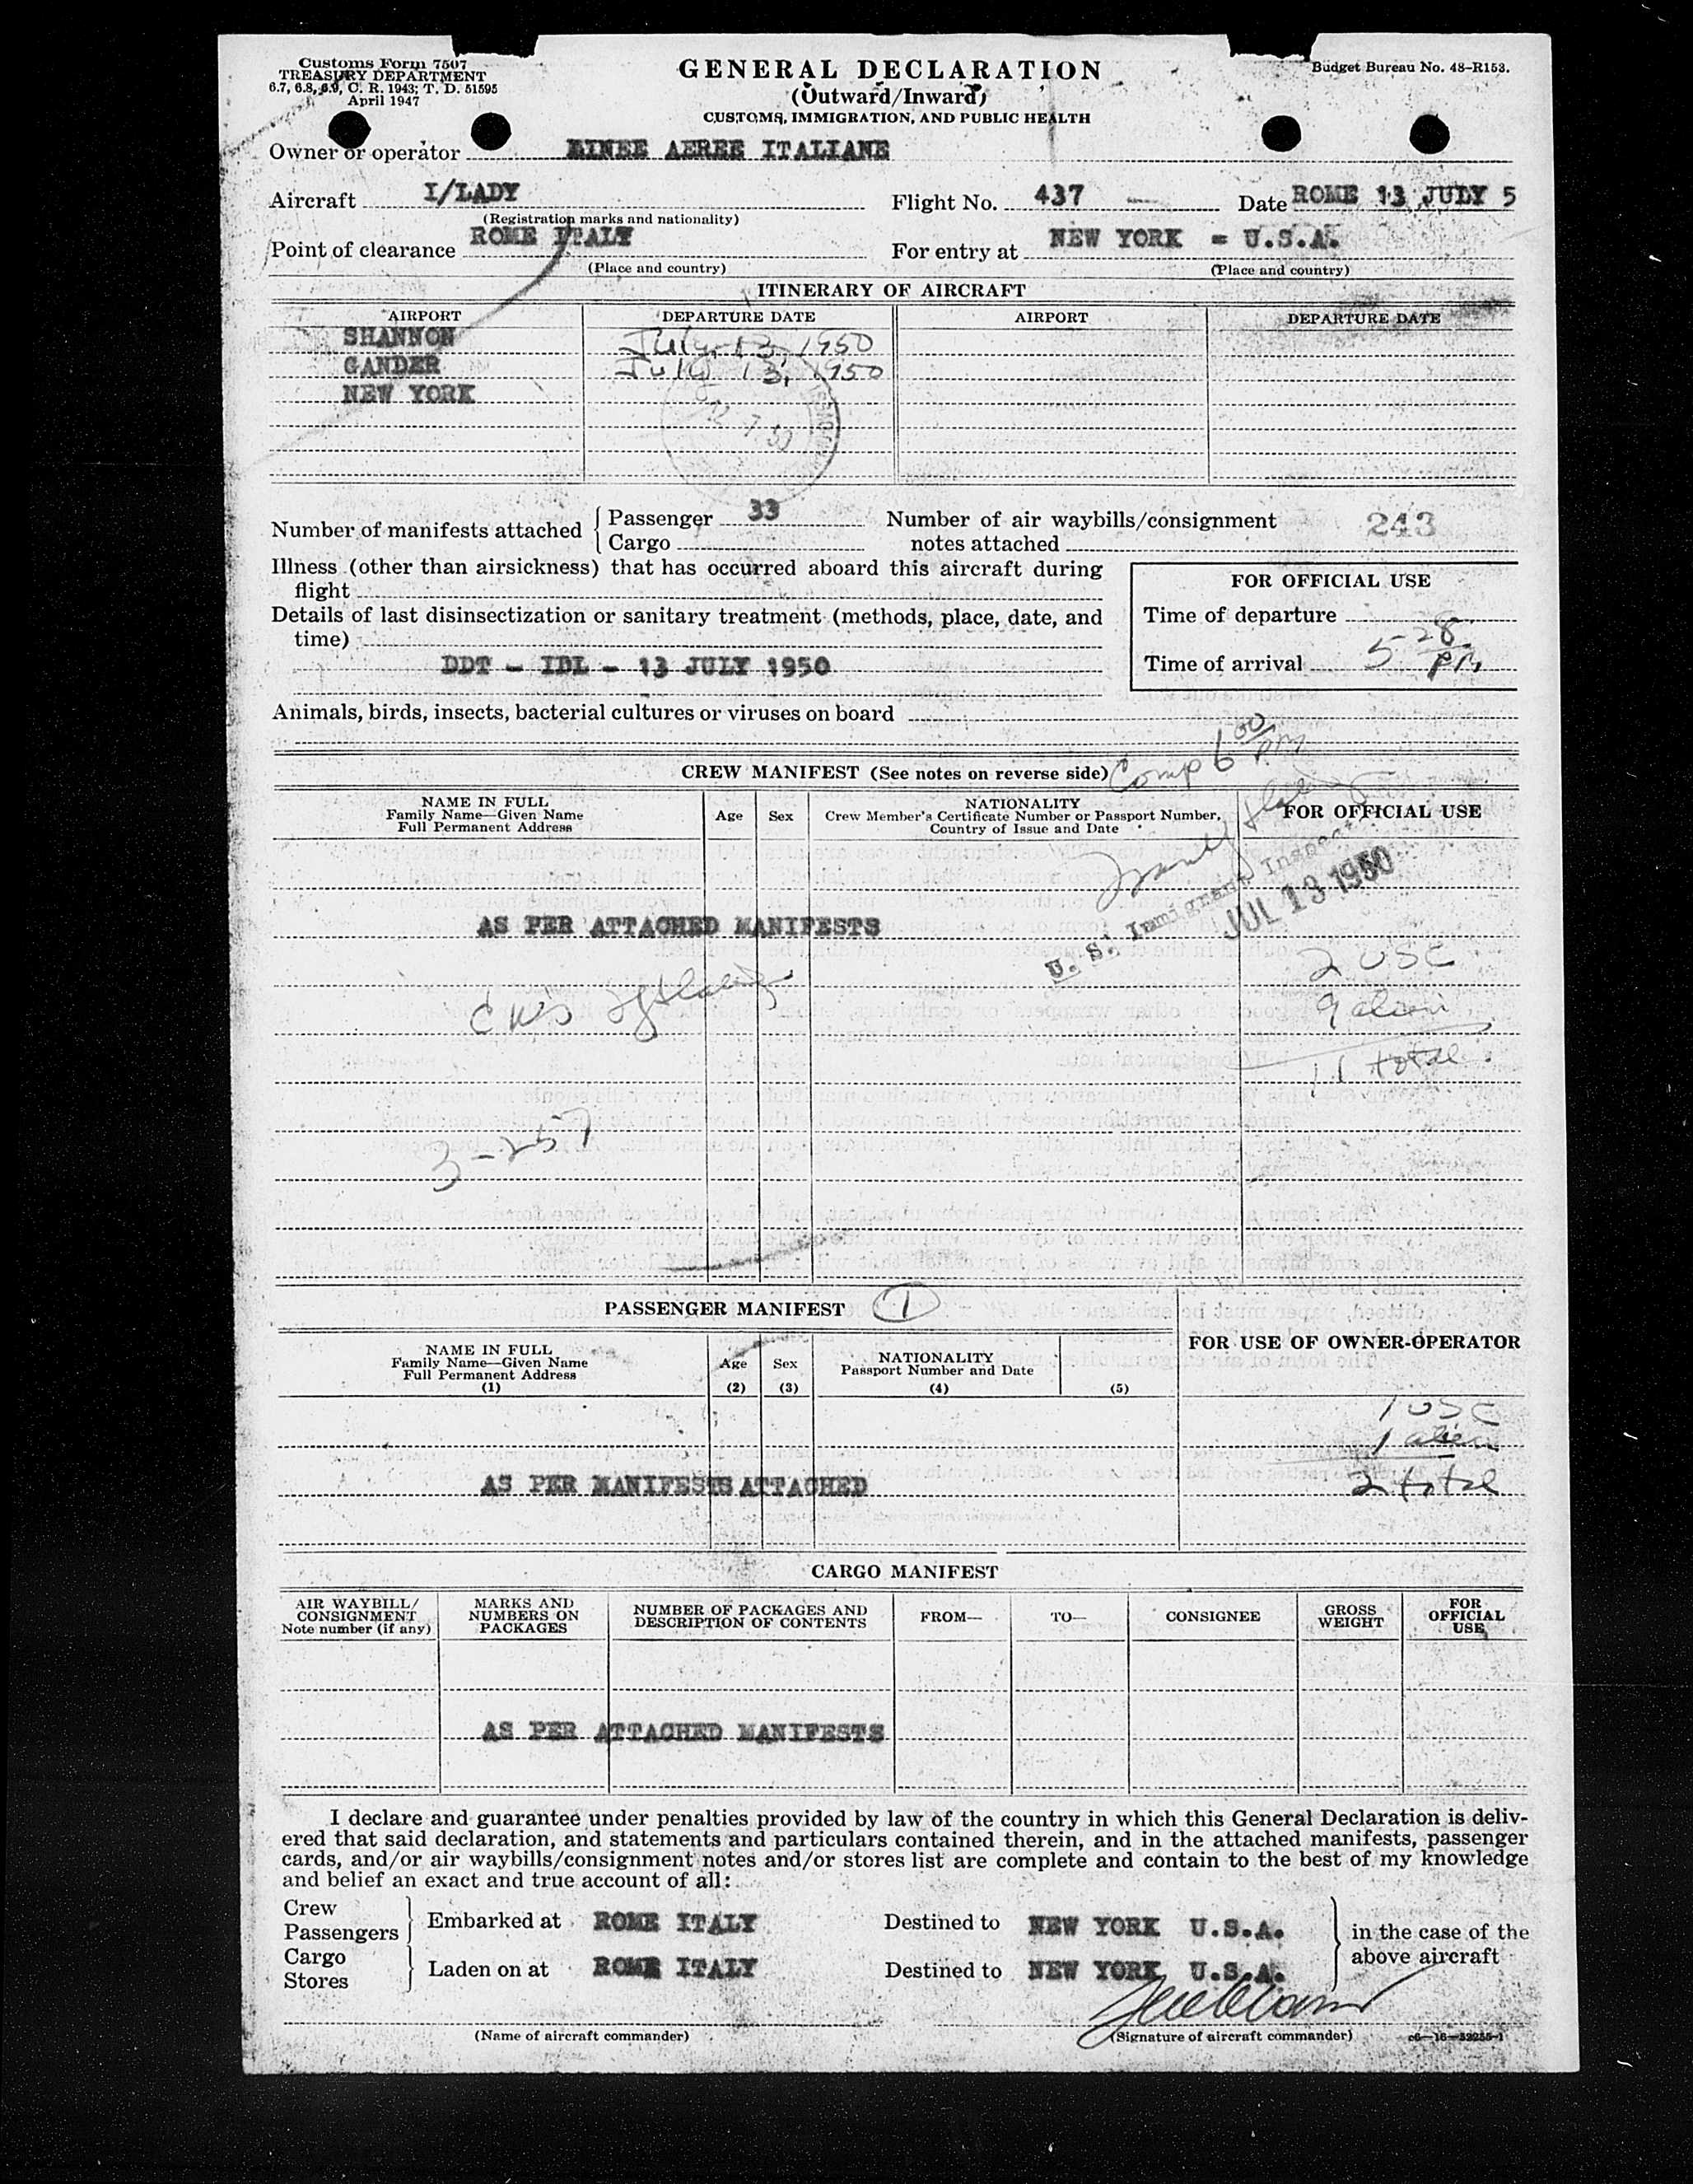 Customs Form 7507
TREASURY DEPARTMENT
6.7, 6.8, 6.9, C. R. 1943; T. D. 51595
April 1947
GENERAL DECLARATION
(Outward/Inward)
CUSTOMS, IMMIGRATION, AND PUBLIC HEALTH
Budget Bureau No. 48-R153.
Owner or operator LINEE AEREE ITALIANE
Aircraft I/LADY Flight No. 437 Date ROME 13 JULY 5
(Registration marks and nationality)
Point of clearance ROME ITALY For entry at NEW YORK = U.S.A.
(Place and country) (Place and country)
ITINERARY OF AIRCRAFT
AIRPORT DEPARTURE DATE AIRPORT DEPARTURE DATE
SHANNON July 13, 1950
GANDER July 13, 1950
NEW YORK
12 7 50
Number of manifests attached { Passenger 33
Cargo
Number of air waybills/consignment
notes attached
243
Illness (other than airsickness) that has occurred aboard this aircraft during
flight
Details of last disinsectization or sanitary treatment (methods, place, date, and
time)
DDT - IDL - 13 JULY 1950
FOR OFFICIAL USE
Time of departure
Time of arrival 5 28 PM
Animals, birds, insects, bacterial cultures or viruses on board
Comp 6 00 PM
CREW MANIFEST (See notes on reverse side)
NAME IN FULL
Family Name—Given Name
Full Permanent Address
Age Sex
NATIONALITY
Crew Member's Certificate Number or Passport Number,
Country of Issue and Date
FOR OFFICIAL USE
U. S. Immigrant Inspector
JUL 13 1950
AS PER ATTACHED MANIFESTS
2 USC
9 alien
11 total
3-257
PASSENGER MANIFEST 1
FOR USE OF OWNER-OPERATOR
NAME IN FULL
Family Name—Given Name
Full Permanent Address
(1)
Age
(2)
Sex
(3)
NATIONALITY
Passport Number and Date
(4)
(5)
1 USC
1 alien
2 total
AS PER MANIFESTS ATTACHED
CARGO MANIFEST
AIR WAYBILL/
CONSIGNMENT
Note number (if any)
MARKS AND
NUMBERS ON
PACKAGES
NUMBER OF PACKAGES AND
DESCRIPTION OF CONTENTS
FROM— TO— CONSIGNEE
GROSS
WEIGHT
FOR
OFFICIAL
USE
AS PER ATTACHED MANIFESTS
I declare and guarantee under penalties provided by law of the country in which this General Declaration is deliv-
ered that said declaration, and statements and particulars contained therein, and in the attached manifests, passenger
cards, and/or air waybills/consignment notes and/or stores list are complete and contain to the best of my knowledge
and belief an exact and true account of all:
Crew
Passengers } Embarked at ROME ITALY Destined to NEW YORK U.S.A.
Cargo
Stores } Laden on at ROME ITALY Destined to NEW YORK U.S.A.
in the case of the
above aircraft
(Name of aircraft commander) (Signature of aircraft commander)